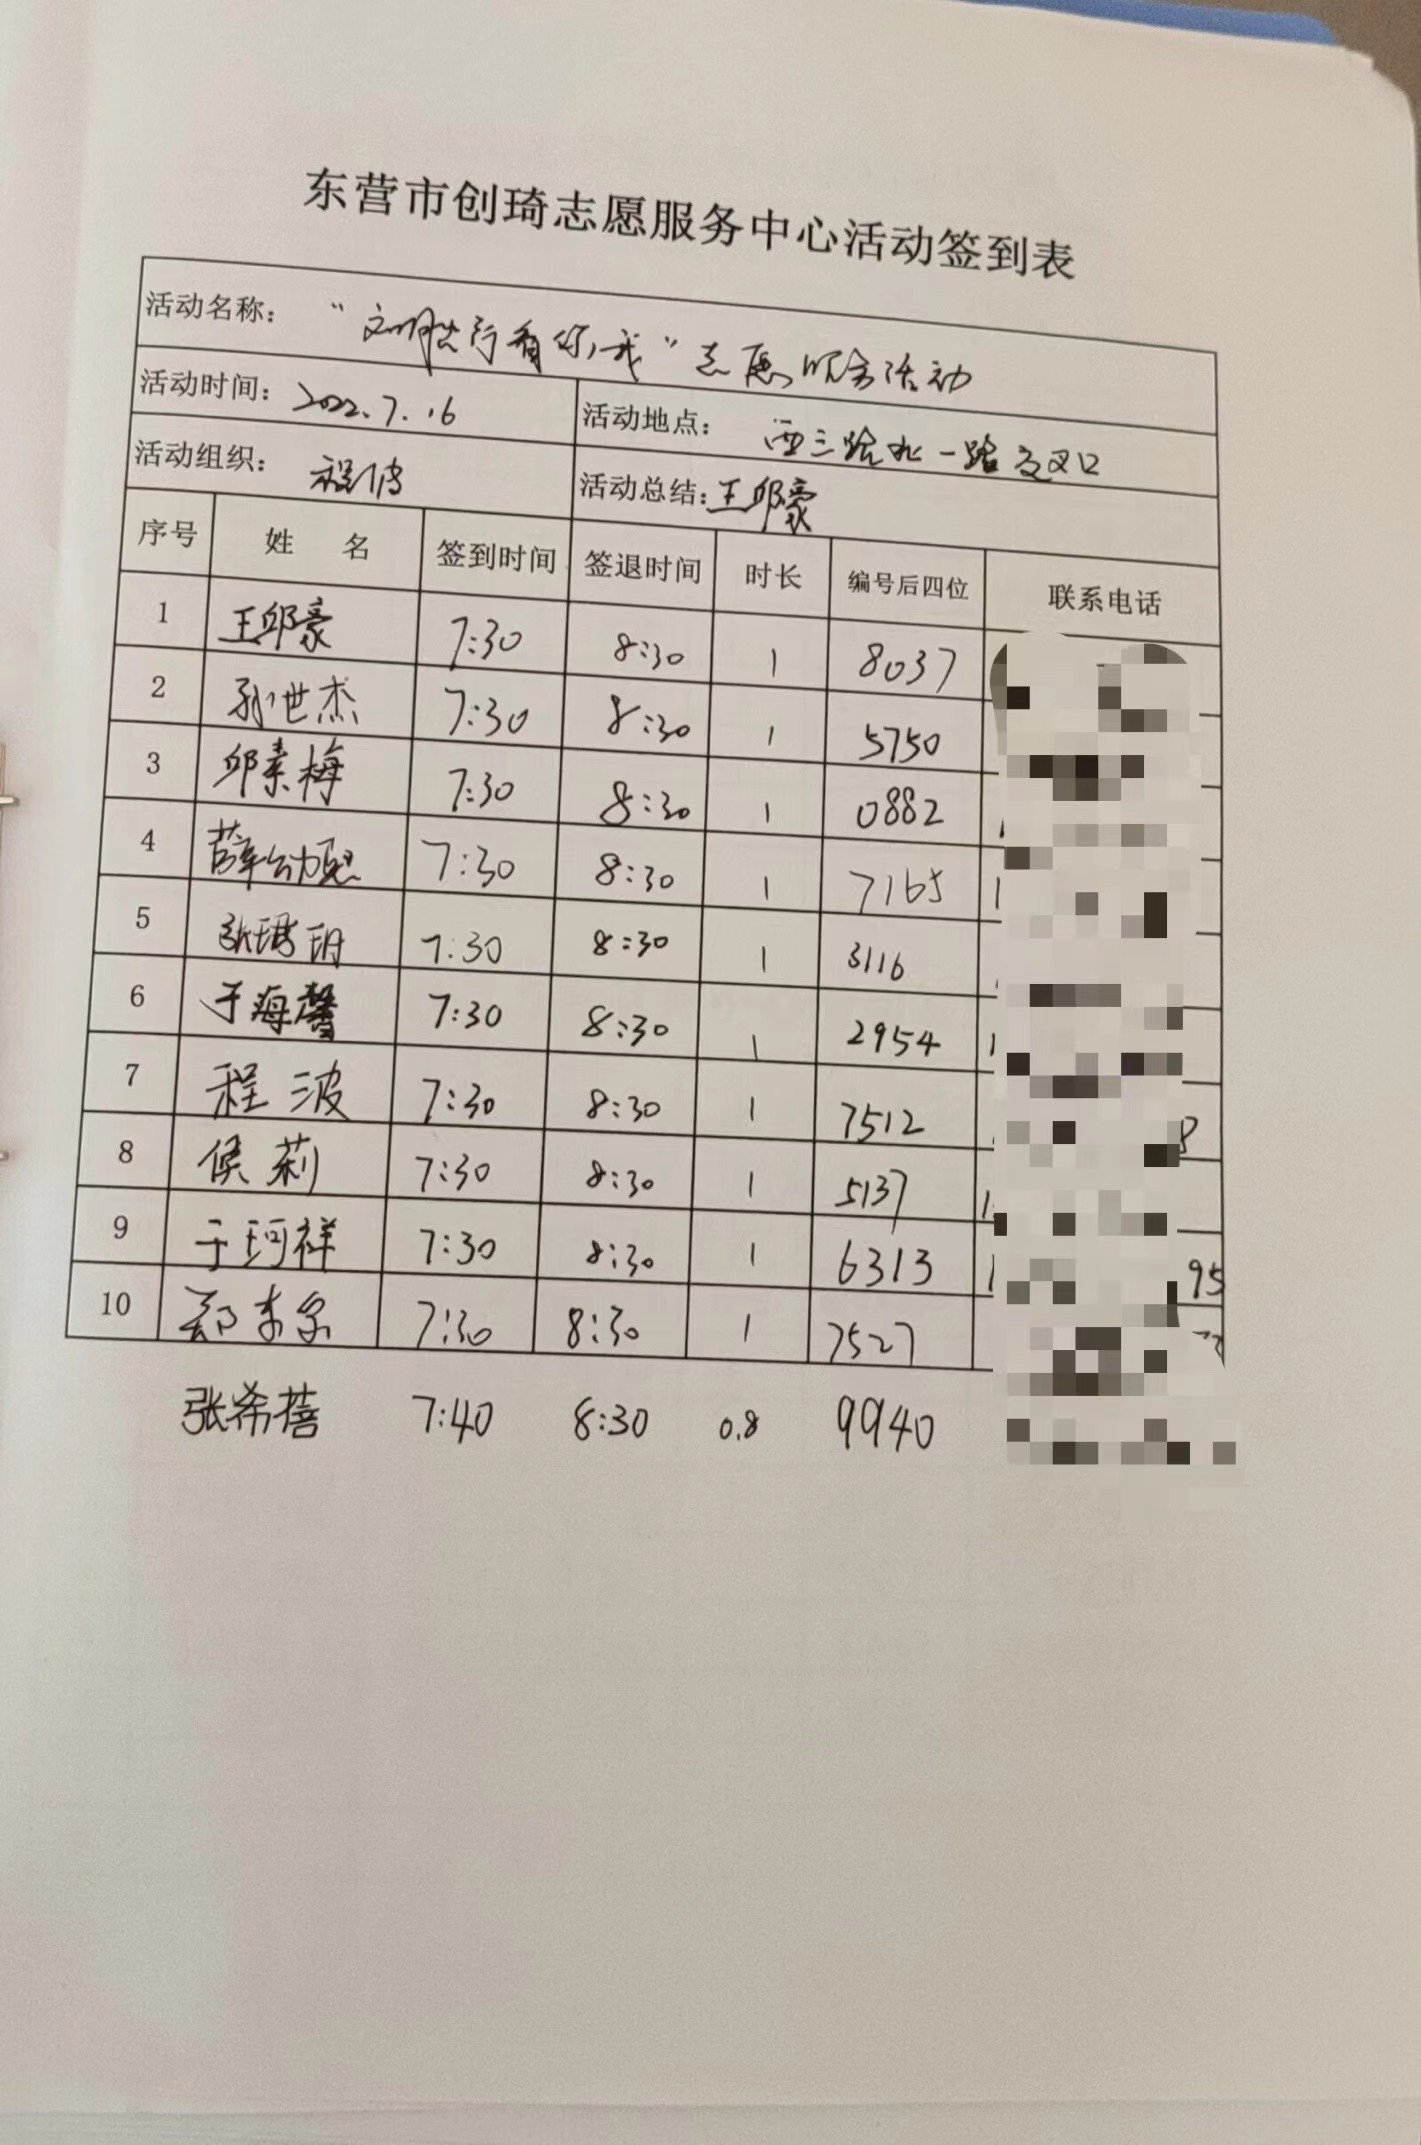 东营市创琦志愿服务中心活动签到表
活动名称： “文明出行有你我”志愿服务活动
活动时间： 2022.7.16 活动地点： 西三路北一路交叉口
活动组织： 程波 活动总结： 王邱豪
序号 姓 名 签到时间 签退时间 时长 编号后四位 联系电话
1 王邱豪 7:30 8:30 1 8037
2 孙世杰 7:30 8:30 1 5750
3 邱素梅 7:30 8:30 1 0882
4 薛幼 7:30 8:30 1 7165
5 张琇玥 7:30 8:30 1 3116
6 于海馨 7:30 8:30 1 2954
7 程波 7:30 8:30 1 7512 8
8 侯莉 7:30 8:30 1 5137
9 于珂祥 7:30 8:30 1 6313 95
10 郑 7:30 8:30 1 7527
张希蓓 7:40 8:30 0.8 9940